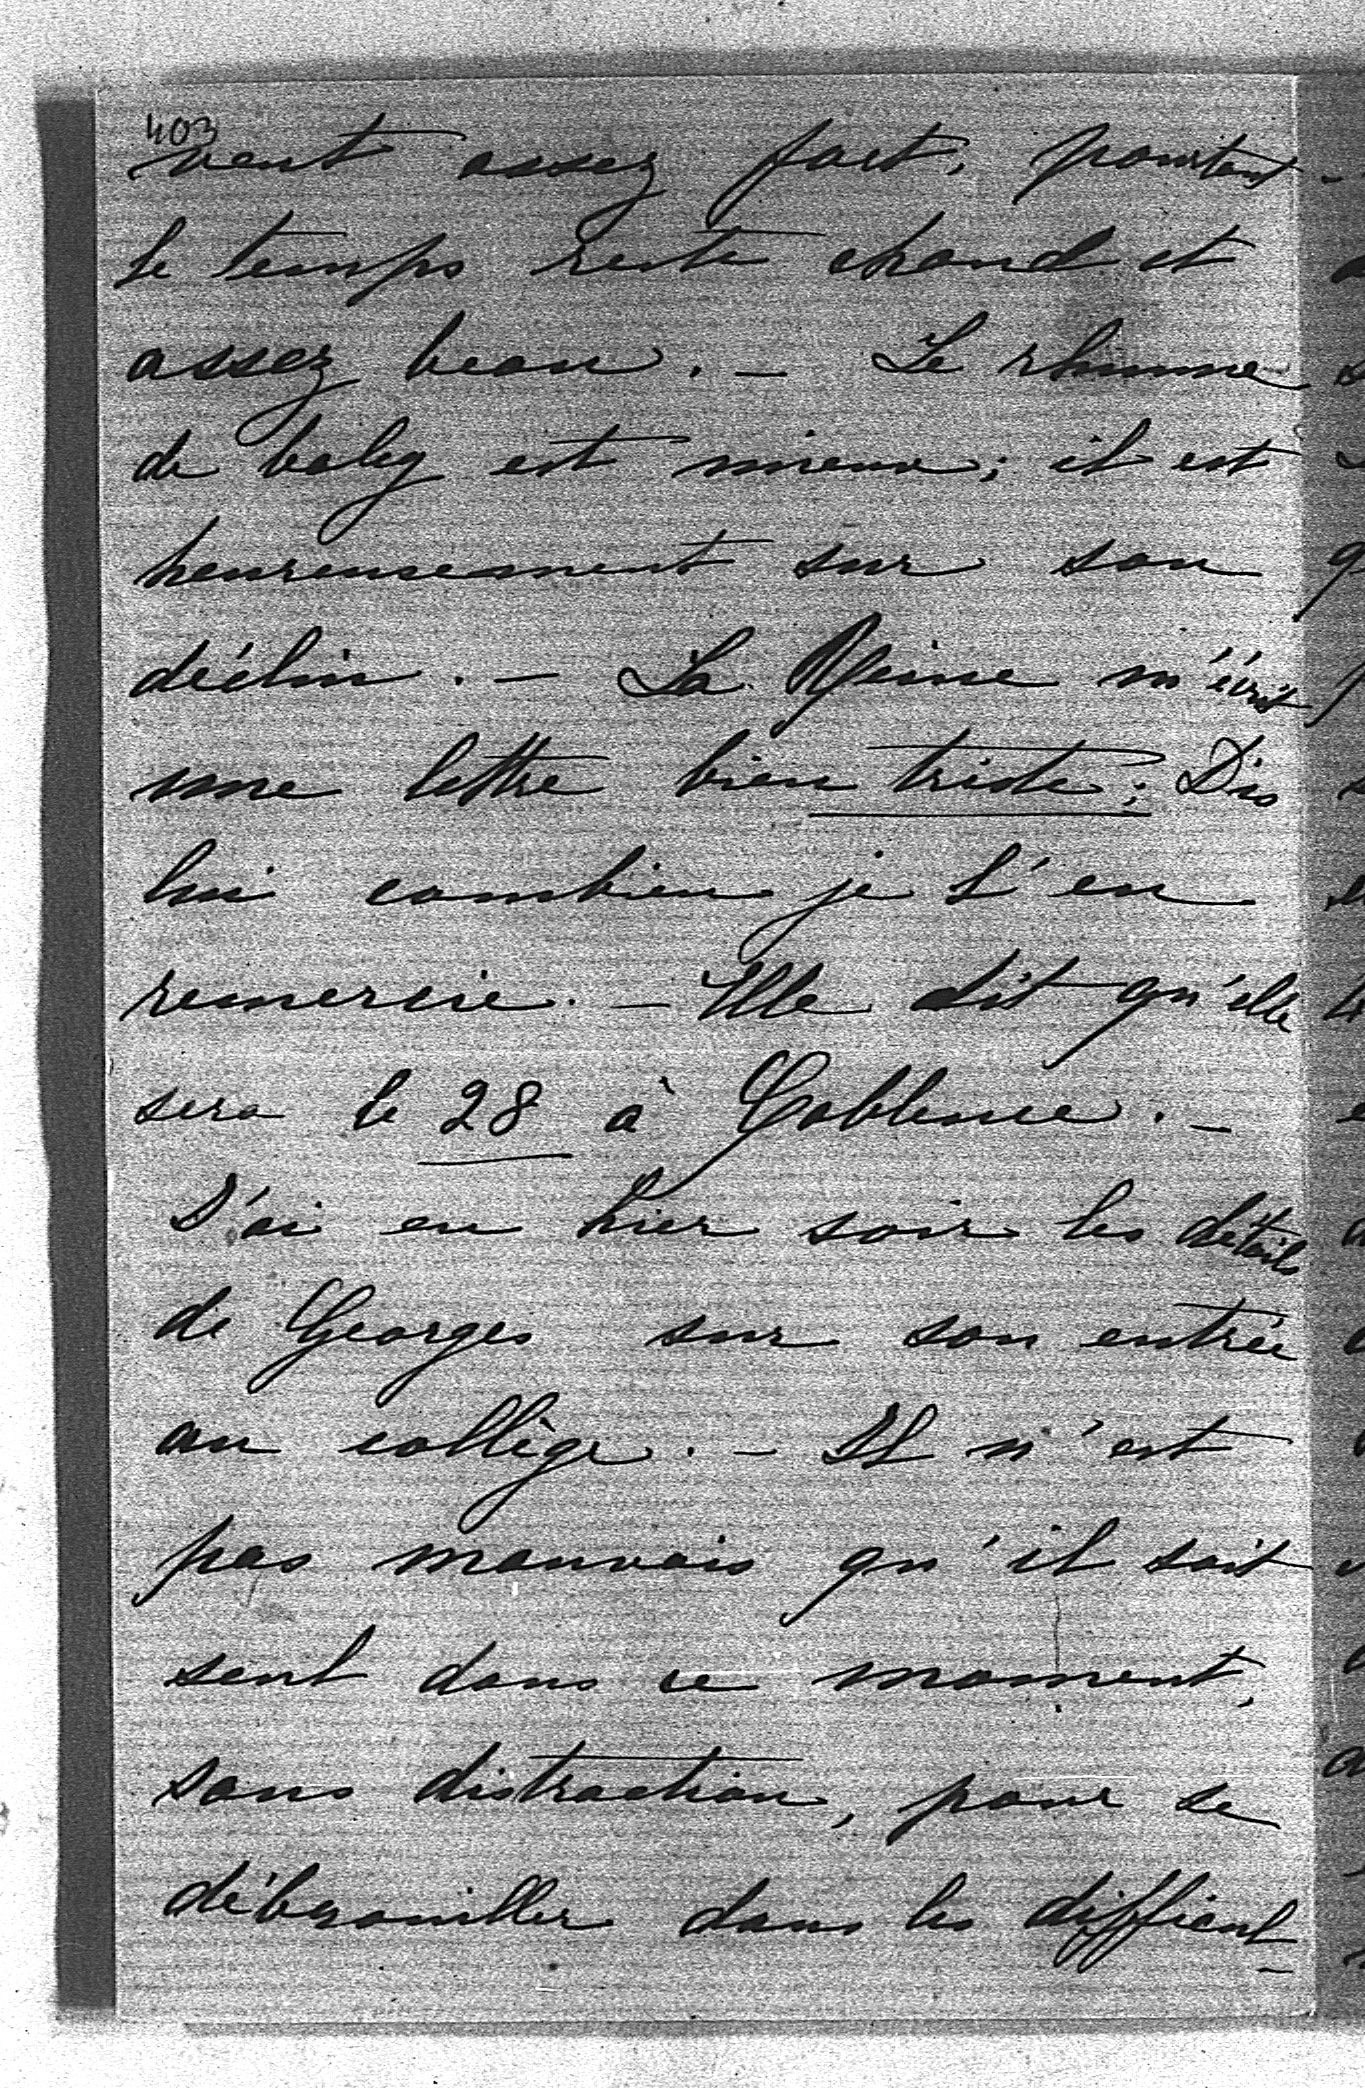 403
vent assez fort, pourtant
le temps reste chaud et
assez beau. – Le rhume
de baby est mieux; il est
heureusement sur son
déclin. – La Reine m'écrit
une lettre bien triste; Dis
lui combien je l'en
remercie. – Elle dit qu'elle
sera le 28 à Coblence. –
J'ai eu hier soir les détails
de Georges sur son entrée
au collège. – Il n'est
pas mauvais qu'il soit
seul dans ce moment,
sans distraction, pour se
débrouiller dans les difficul-